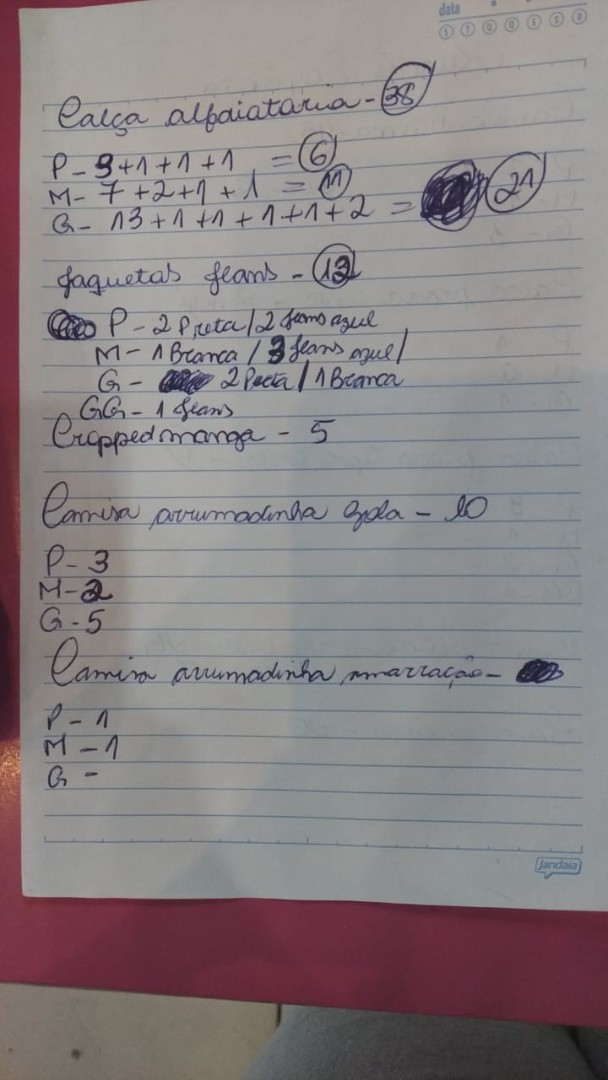 data
S T Q Q S S D
Calça alfaiataria - 38
P - 3+1+1+1 = 6
M - 7+2+1+1 = 11
G - 13+1+1+1+1+2 = 21
Jaquetas Jeans - 12
P - 2 Preta / 2 Jeans azul
M - 1 Branca / 3 Jeans azul /
G - 2 Preta / 1 Branca
GG - 1 Jeans
Cropped manga - 5
Camisa arrumadinha Gola - 10
P - 3
M - 2
G - 5
Camisa arrumadinha amarração -
P - 1
M - 1
G -
jandaia